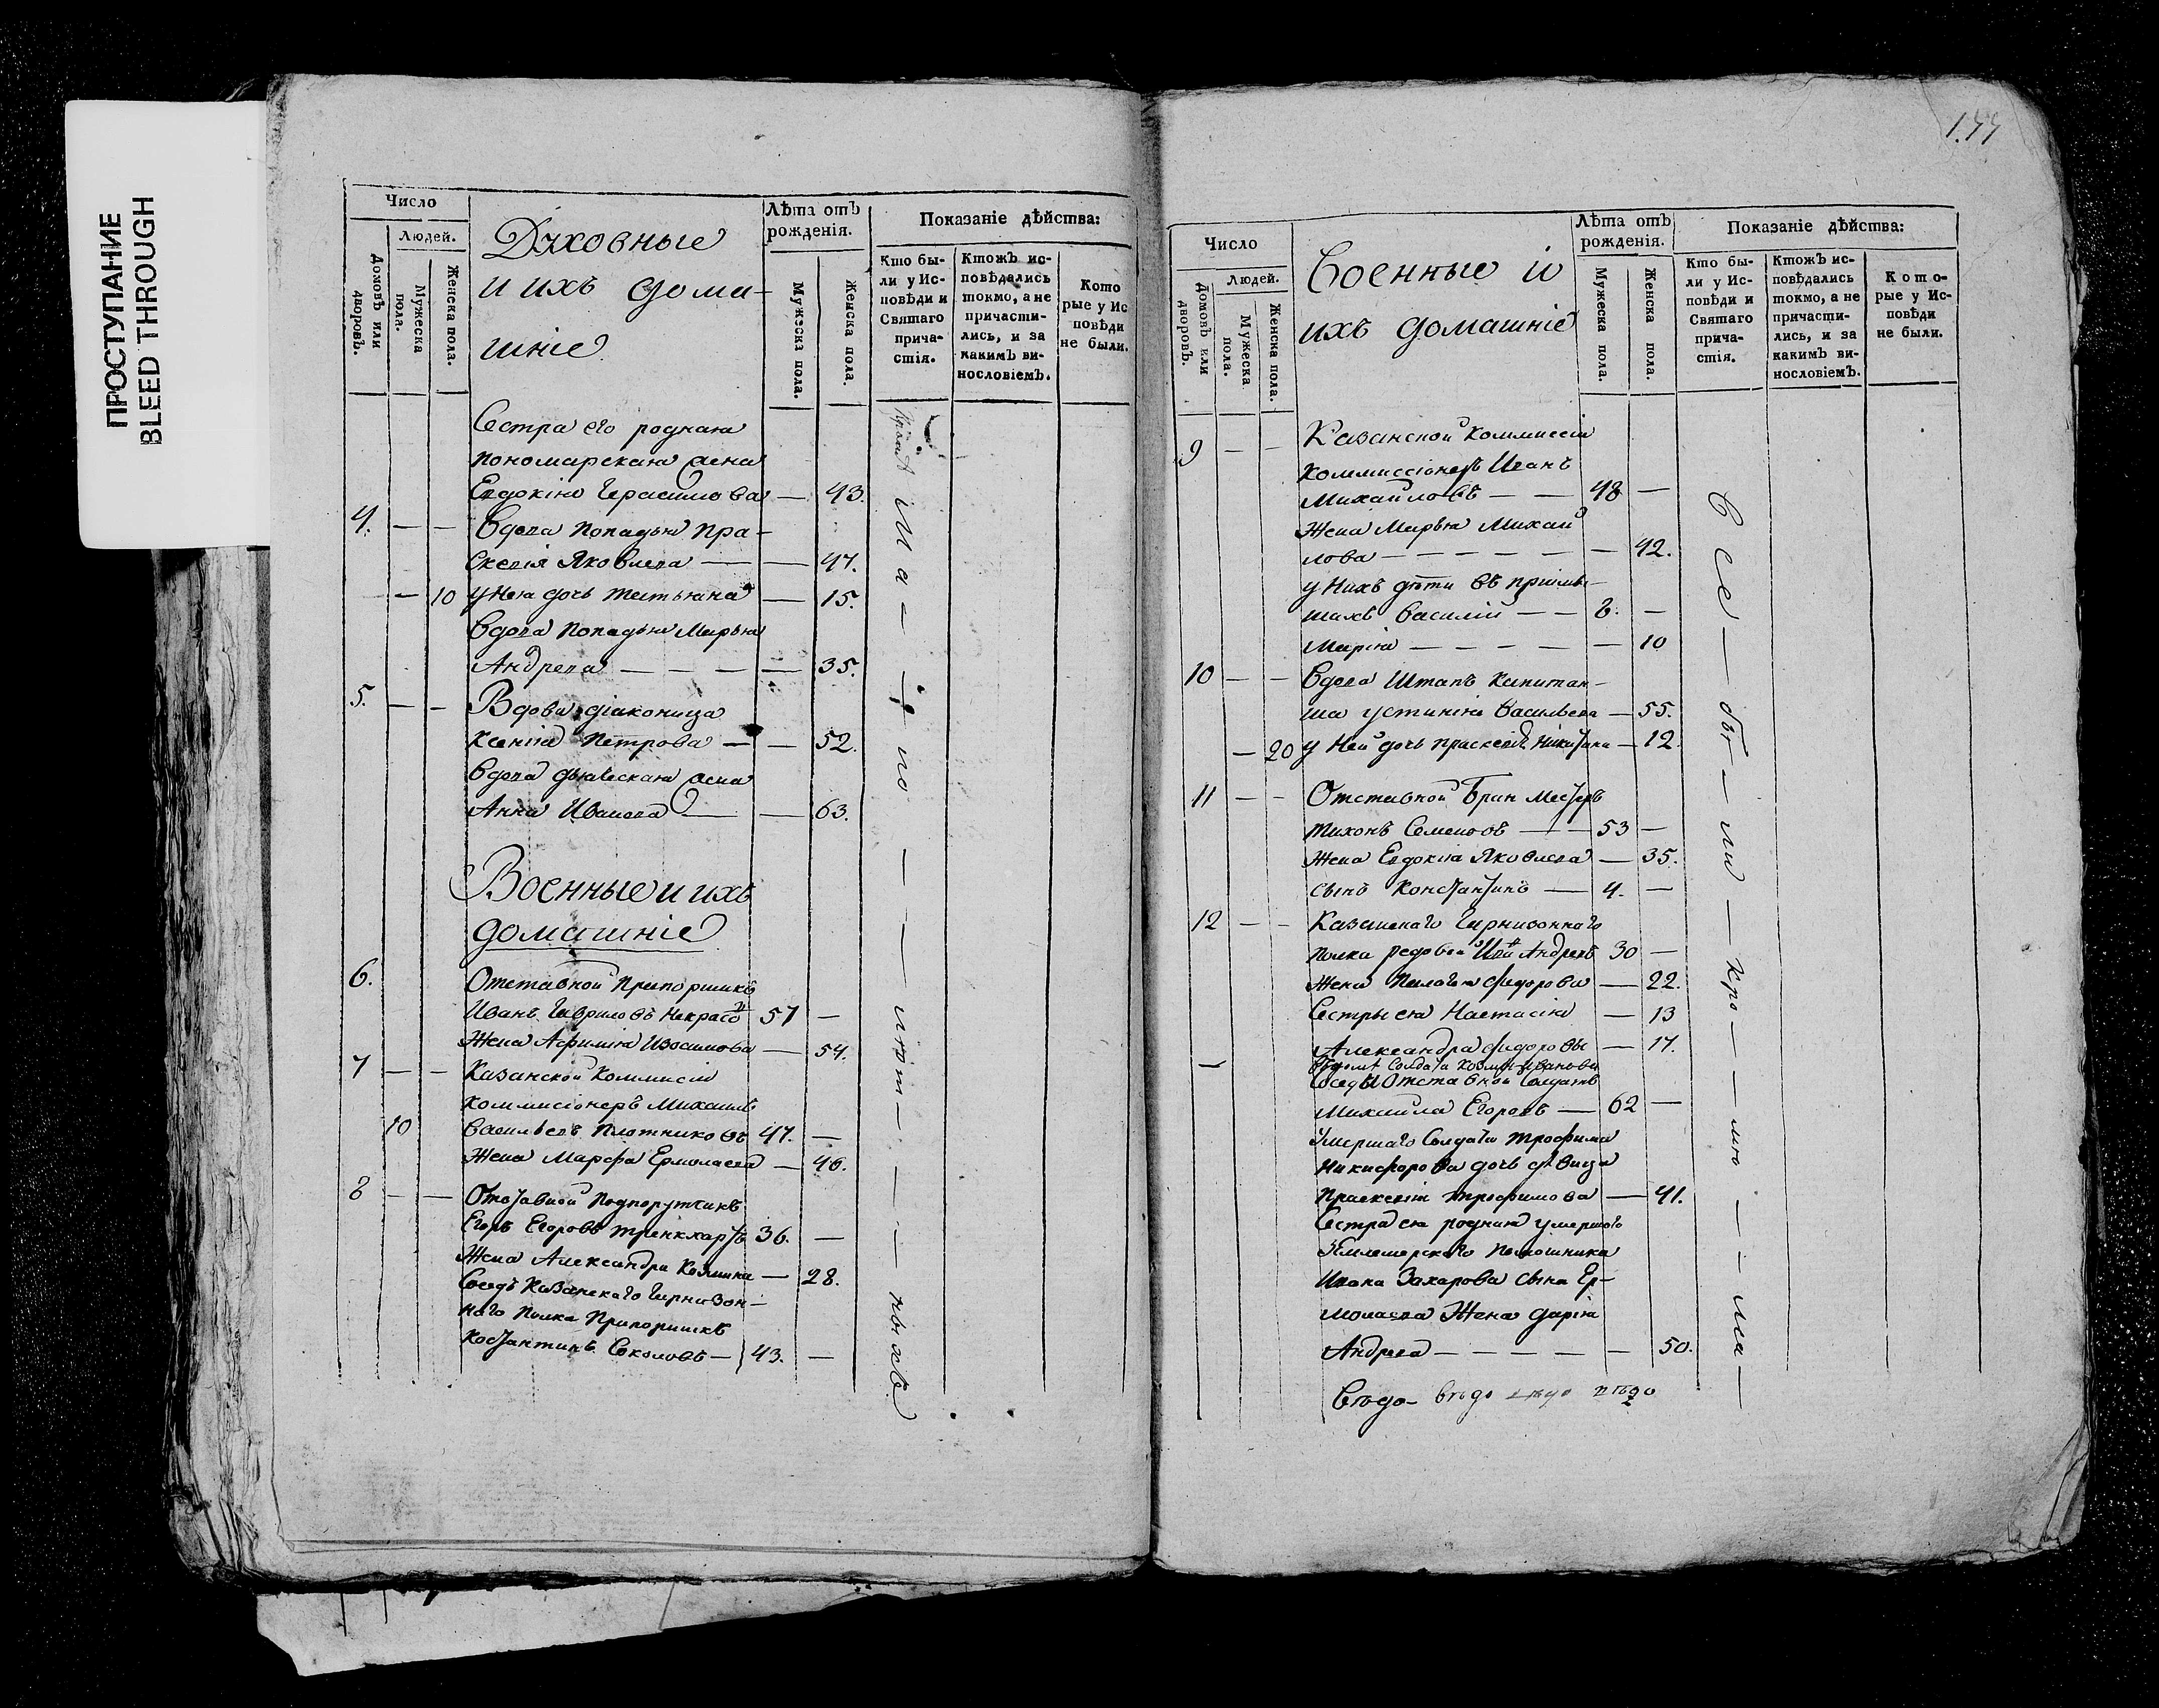 ПРОСТУПАНИЕ
BLEED THROUGH
Число
Людей.
Домовъ или дворовъ.
Мужеска пола.
Женска пола.
Духовные
и ихъ дома-
шніе
Лѣта отъ
рожденія.
Мужеска пола.
Женска пола.
Показаніе дѣйства:
Кто бы-
ли у Ис-
повѣди и
Святаго
прича-
стія.
Ктожъ ис-
повѣдались
токмо, а не
причасти-
лись, и за
какимъ ви-
нословіемъ.
Кото
рые у Ис
повѣди
не были.
Сестра его родная
пономарская жена
Евдокія Герасимова — 43.
4. — — Вдова попадья Пра-
скевія Яковлева — — 47.
— 10 у нея дочь Татьяна — 15.
Вдова попадья Марья
Андреева — — — — 35.
5. — — Вдова діаконица
Ксенія Петрова — — 52.
Вдова дьяческая жена
Анна Иванова — — 63.
Военные и ихъ
домашніе
6. Отставной Прапорщикъ
Иванъ Гавриловъ Некрасо 57 —
Жена Афимія Изосимова — 54.
7 — — Казанской Коммисіи
коммисіонеръ Михаилъ
10 Васильевъ Плотниковъ 47. —
Жена Марфа Ермолаева — 46.
8 — — Отставной Подпорутчикъ
Егоръ Егоровъ 36. —
Жена Александра Козмина — 28.
Соседъ Казанскаго Гарнизон-
наго Полка Прапорщикъ
Костантинъ Соколовъ — 43. —
1.44
Число
Людей.
Домовъ или дворовъ.
Мужеска пола.
Женска пола.
Военные и
ихъ домашніе
Лѣта отъ
рожденія.
Мужеска пола.
Женска пола.
Показаніе дѣйства:
Кто бы-
ли у Ис-
повѣди и
Святаго
прича-
стія.
Ктожъ ис-
повѣдались
токмо, а не
причасти-
лись, и за
какимъ ви-
нословіемъ.
Кото-
рые у Ис-
повѣди
не были.
9 — — Казанской Коммиссіи
коммиссіонеръ Иванъ
Михайловъ — — 48 —
Жена Марья Михай
лова — — — — — — 42.
у Нихъ дѣти въ пріимы-
шахъ Василій — — 8. —
Марія — — — — — 10
10 — — Вдова Штапъ Капитан-
ша Устинія Васильева — 55.
— 20 у Ней дочь Праскевія Никитина — 12.
11 — — Отставной Бран Местеръ
Тихонъ Семеновъ — — 53 —
Жена Евдокіа Яковлева — 35.
сынъ Константинъ — 4. —
12 — — Казанскаго Гарнизоннаго
полка редовой Андреевъ 30 —
Жена Пелагея Фидорова — 22.
Сестры ея Настасія — 13
Александра Фидоровы — 17.
— Солдата Козмы Иванова
Соседъ Отставной Солдатъ
Михаила Егоровъ — 62 —
Умершаго Солдата Трофима
Никифорова дочь дѣвица
Праскевія Трофимова — 41.
Сестра ея родная умершаго
Ивана Захарова сына Ер-
молаева Жена Дарія
Андреева — — — — — 50.
Все — бы — ли — кро — мю — ма —